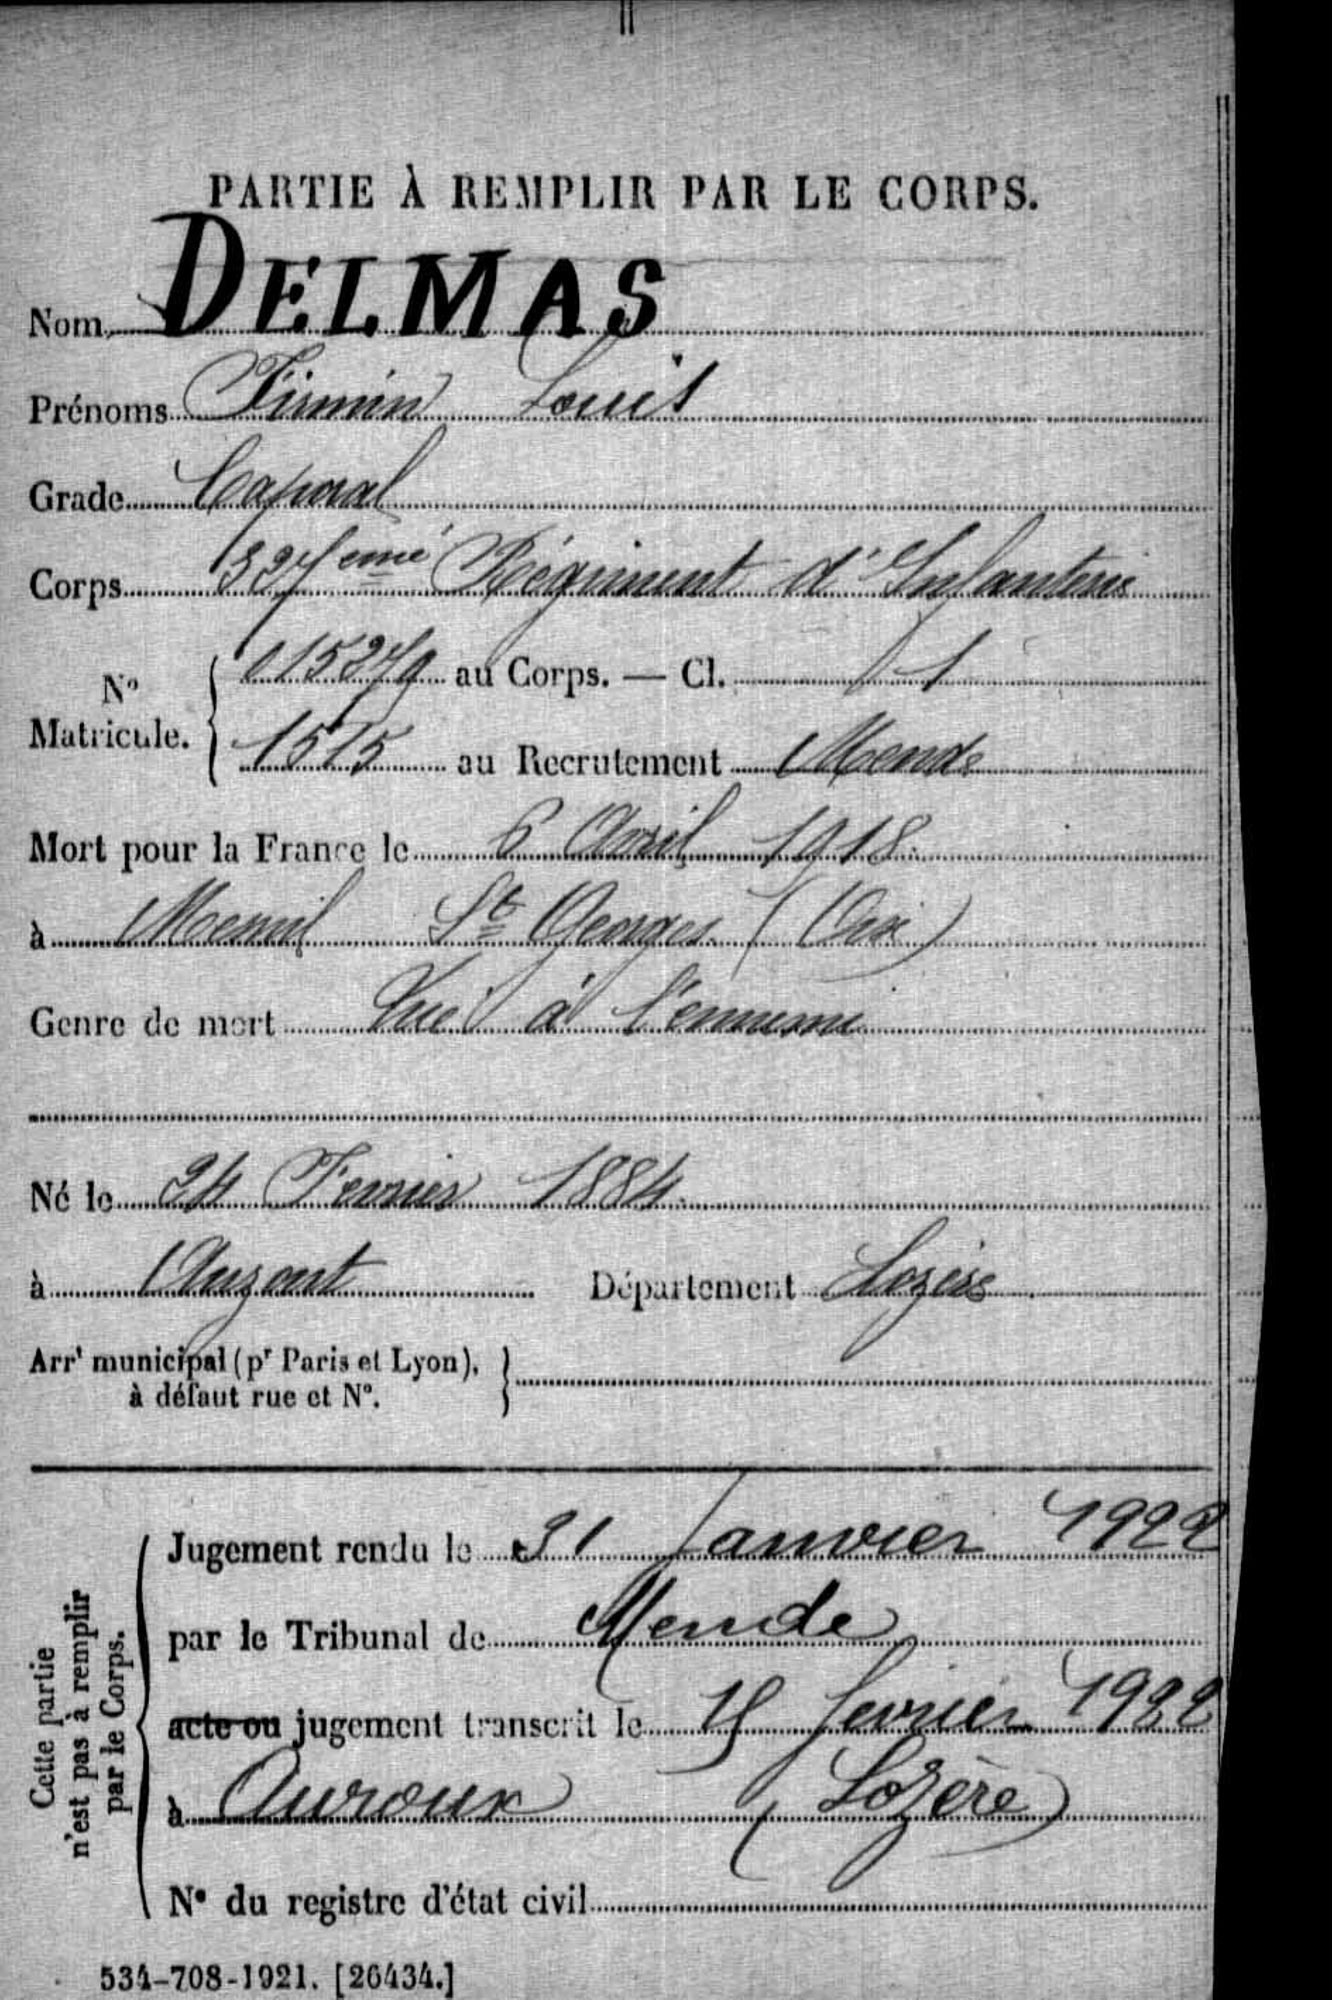 PARTIE À REMPLIR PAR LE CORPS.
Nom DELMAS
Prénoms Firmin Louis
Grade Caporal
Corps Régiment d'Infanterie
No Matricule. { au Corps. — Cl.
1515 au Recrutement Mende
Mort pour la France le 6 Avril 1918.
à Mesnil St Georges (Oise)
Genre de mort Tué à l'ennemi
Né le 24 Fevrier 1884.
à Département Lozère
Arrt municipal (pr Paris et Lyon), }
à défaut rue et N°.
Cette partie
n'est pas à remplir
par le Corps.
Jugement rendu le 31 Janvier 1922
par le Tribunal de Mende
acte ou jugement transcrit le fevrier 1922
à Auroux (Lozère)
N° du registre d'état civil
534-708-1921. [26434.]